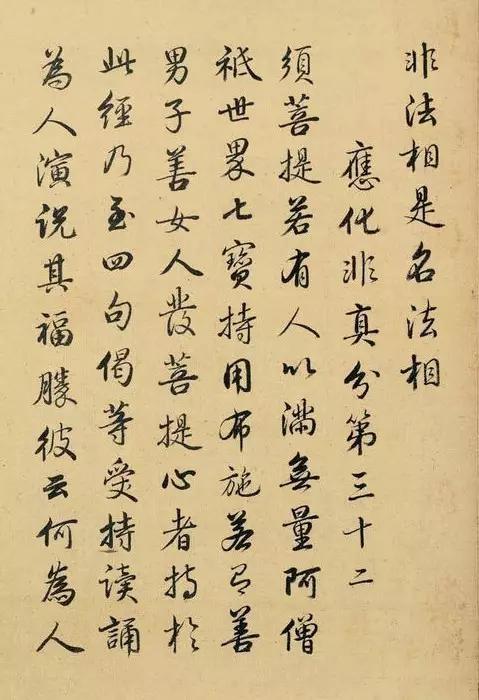 非法相是名法相
應化非真分第三十二
須菩提若有人以滿無量阿僧
祇世界七寶持用布施若有善
男子善女人發菩提心者持於
此經乃至四句偈等受持读誦
為人演说其福勝彼云何為人